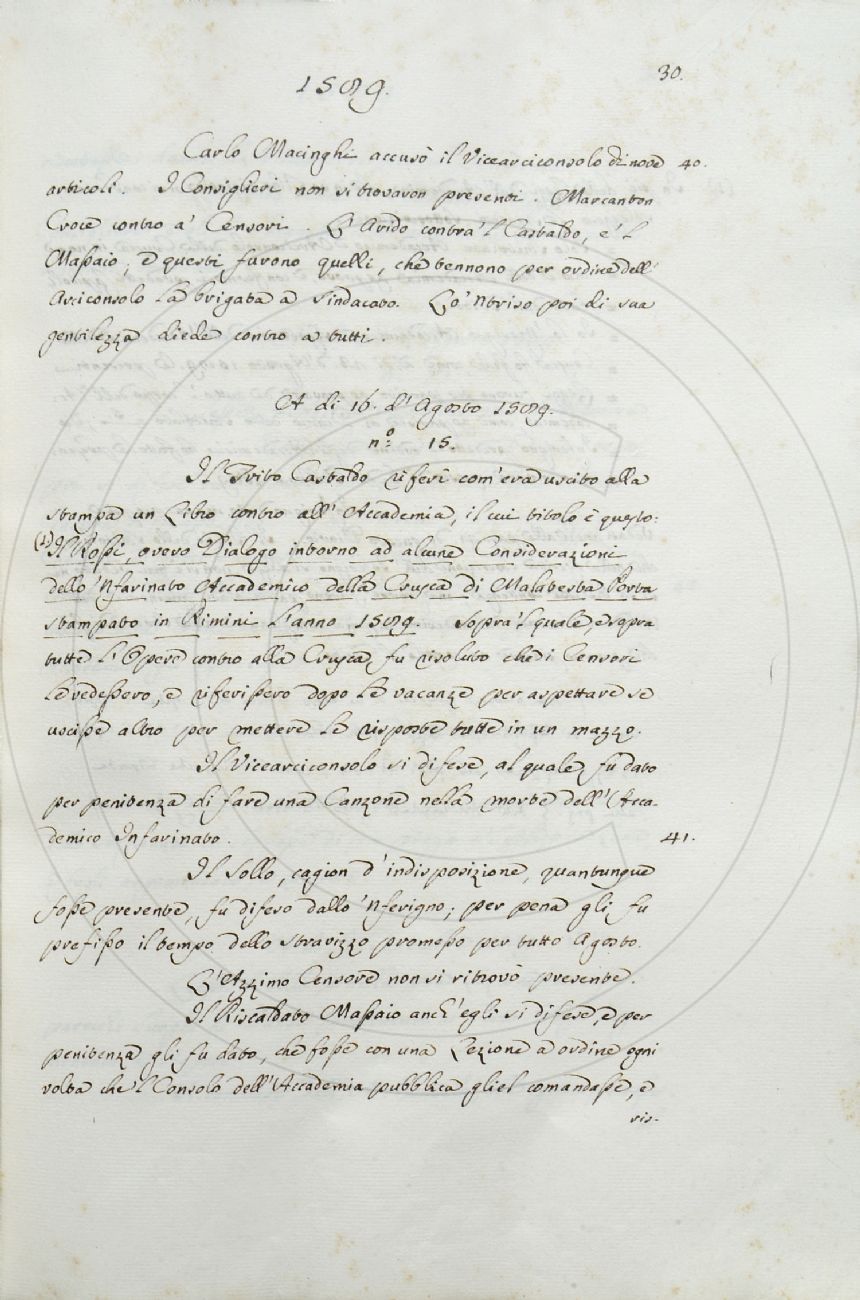 30.
1589.
Carlo Macinghi accusò il Vicearciconsolo di nove 40.
articoli. I Consiglieri non si trovaron presenti. Marcanton
Croce contro a' Censori. L'Arido contra 'l Castaldo, e 'l
Massaio; e questi furono quelli, che tennono per ordine dell'
Arciconsolo la brigata a sindacato. Lo 'Ntriso poi di sua
gentilezza diede contro a tutti.
A di 16. d'Agosto 1589.
n.º 15.
Il Trito Castaldo riferì com'era uscito alla
stampa un Libro contro all'Accademia, il cui titolo è questo:
(1) Il Rossi, overo Dialogo intorno ad alcune Considerazioni
dello 'Nfarinato Accademico della Crusca di Malatesta Porta
stampato in Rimini l'anno 1589. Sopra 'l quale, e sopra
tutte l'Opere contro alla Crusca, fu risoluto che i Censori
le vedessero, e riferissero dopo le vacanze per aspettare se
uscisse altro per mettere le risposte tutte in un mazzo.
Il Vicearciconsolo si difese, al quale fu dato
per penitenza di fare una Canzone nella morte dell'Acca-
demico Infarinato. 41.
Il Sollo, cagion d'indisposizione, quantunque
fosse presente, fu difeso dallo 'Nferigno; per pena gli fu
prefisso il tempo dello stravizzo promesso per tutto Agosto.
L'Azzimo Censore non si ritrovò presente.
Il Riscaldato Massaio anch'egli si difese, e per
penitenza gli fu dato, che fosse con una Lezione a ordine ogni
volta che 'l Consolo dell'Accademia pubblica gliel comandasse, e
ris-